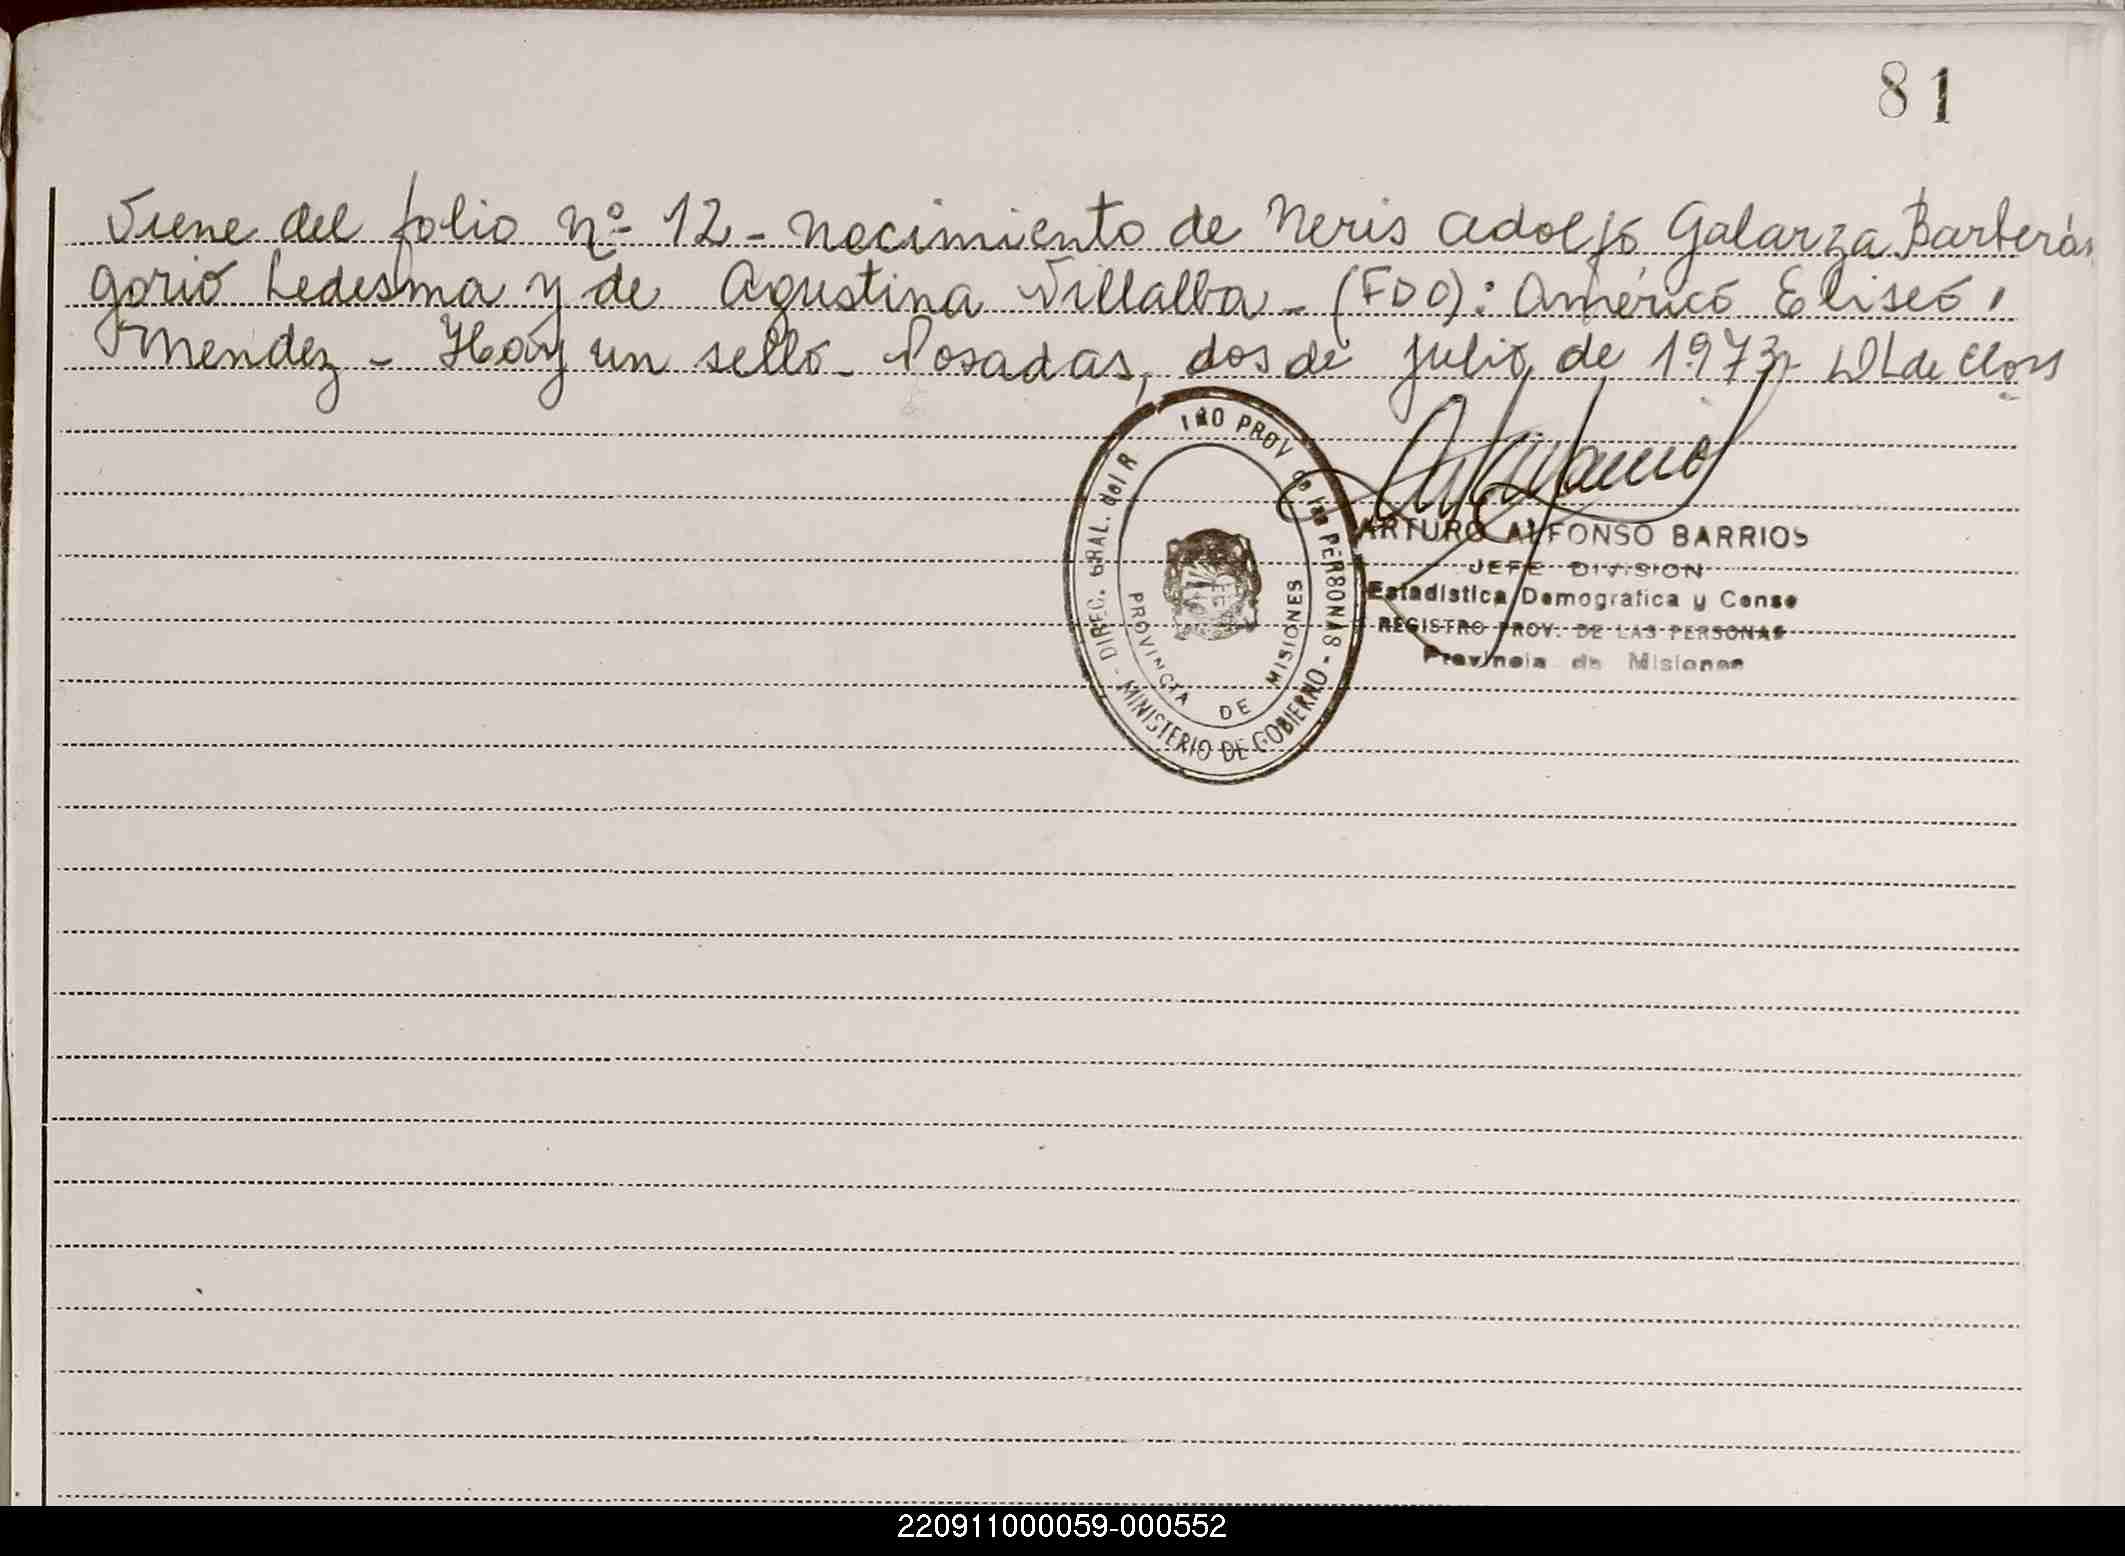 81
Viene del folio nº 12 - nacimiento de Neris Adolfo Galarza Barberán
gorio Ledesma y de Agustina Villalba - (FDO): Américo Eliseo
Mendez - Hay un sello - Posadas, dos de julio de 1973 -
DIREC. GRAL. del R PROV de las PERSONAS - MINISTERIO DE GOBIERNO -
PROVINCIA DE MISIONES
ARTURO ALFONSO BARRIOS
JEFE DIVISION
Estadistica Demografica y Censo
REGISTRO PROV. DE LAS PERSONAS
Provincia de Misiones
220911000059-000552